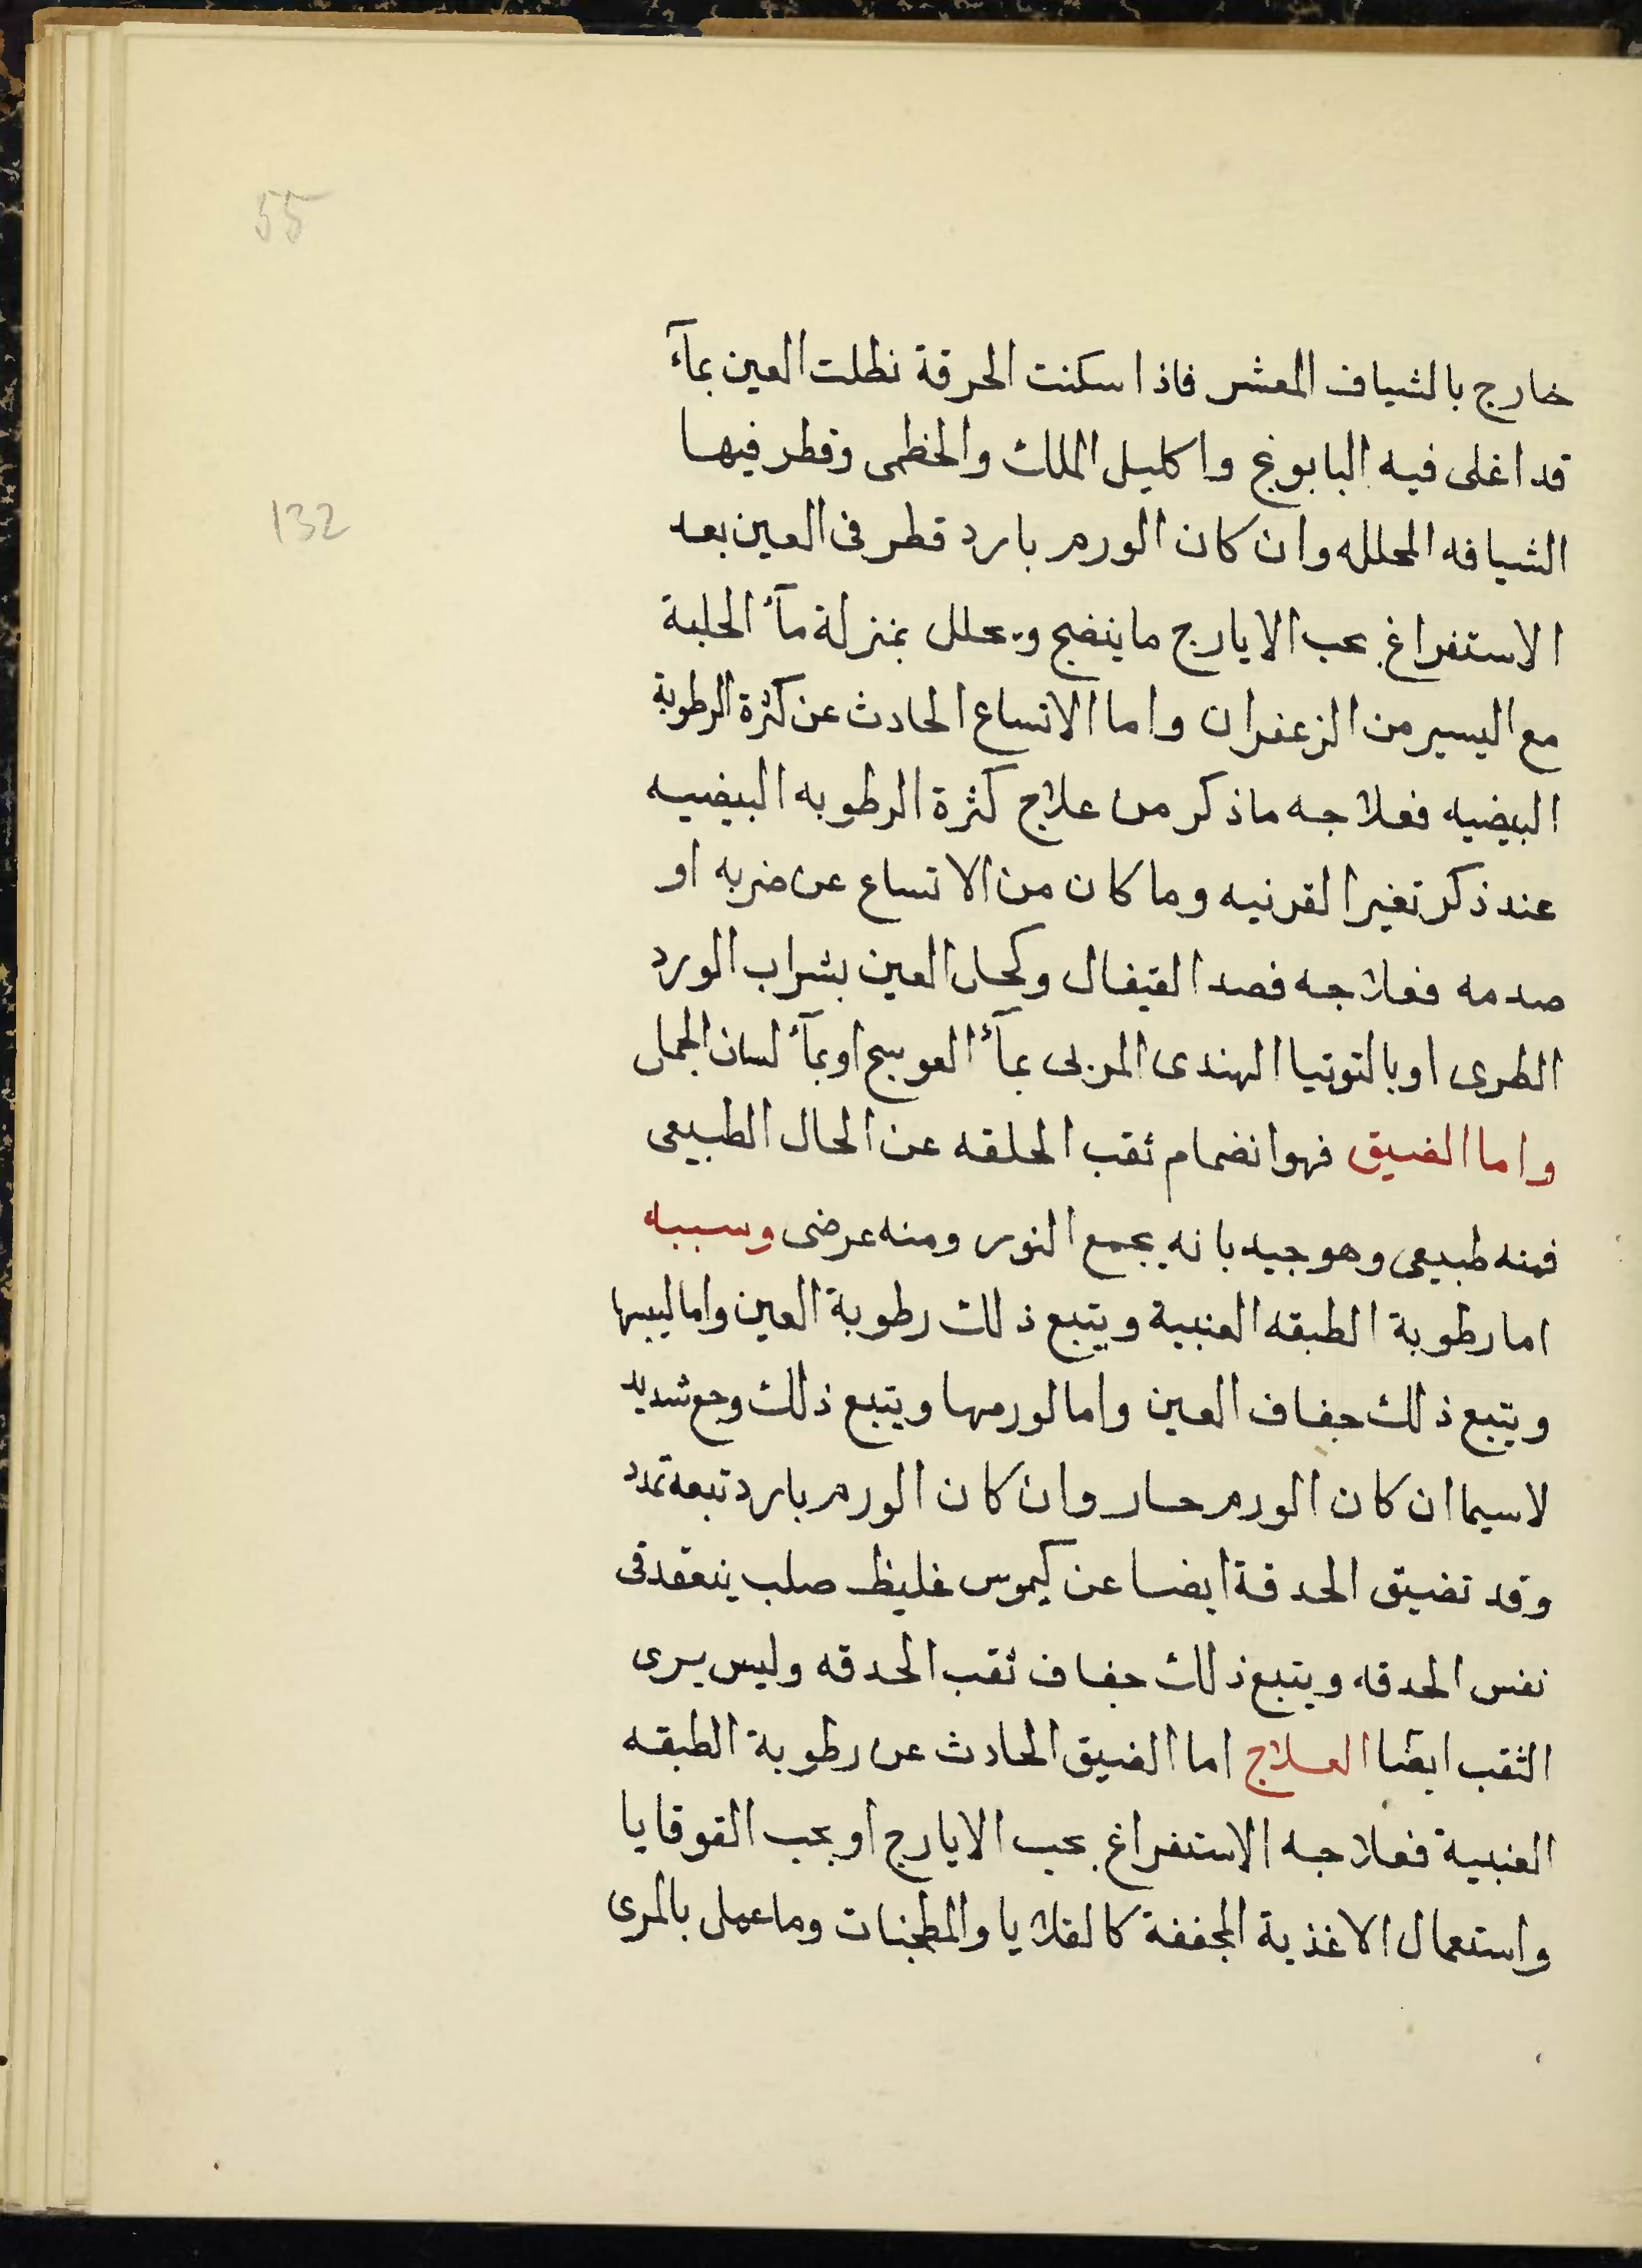 55
خارج بالشياف المعشر فاذا سكنت الحرقة نطلت العين بمآء
قد اغلى فيه البابونج واكليل الملك والخطمى وقطر فيها
132
الشيافه المحلله وان كان الورم بارد قطر فى العين بعد
الاستفراغ بحب الايارج ما ينضج ويحلل بمنزلة مآء الحلبة
مع اليسير من الزعفران واما الاتساع الحادث عن كثرة الرطوبة
البيضيه فعلاجه ما ذكر من علاج كثرة الرطوبه البيضيه
عند ذكر تغير القرنيه وما كان من الاتساع عن ضربه او
صدمه فعلاجه فصد القيفال وكحل العين بشراب الورد
الطرى او بالتوتيا الهندى المربى بمآء العوسج او بمآء لسان الحمل
واما الضيق فهو انضمام ثقب الحلقه عن الحال الطبيعى
فمنه طبيعى وهو جيد بانه يجمع النور ومنه عرضى وسببه
اما رطوبة الطبقه العنبية ويتبع ذلك رطوبة العين واما ليبسها
ويتبع ذلك جفاف العين واما لورمها ويتبع ذلك وجع شديد
لاسيما ان كان الورم حار وان كان الورم بارد تبعه تمدد
وقد تضيق الحدقة ايضا عن كيموس غليظ صلب ينعقد فى
نفس الحدقه ويتبع ذلك جفاف ثقب الحدقه وليس يرى
الثقب ايضا العلاج اما الضيق الحادث عن رطوبة الطبقه
العنبية فعلاجه الاستفراغ بحب الايارج او بحب القوقايا
واستعمال الاغذية المجففة كالقلايا والمطجنات وما عمل بالمرى